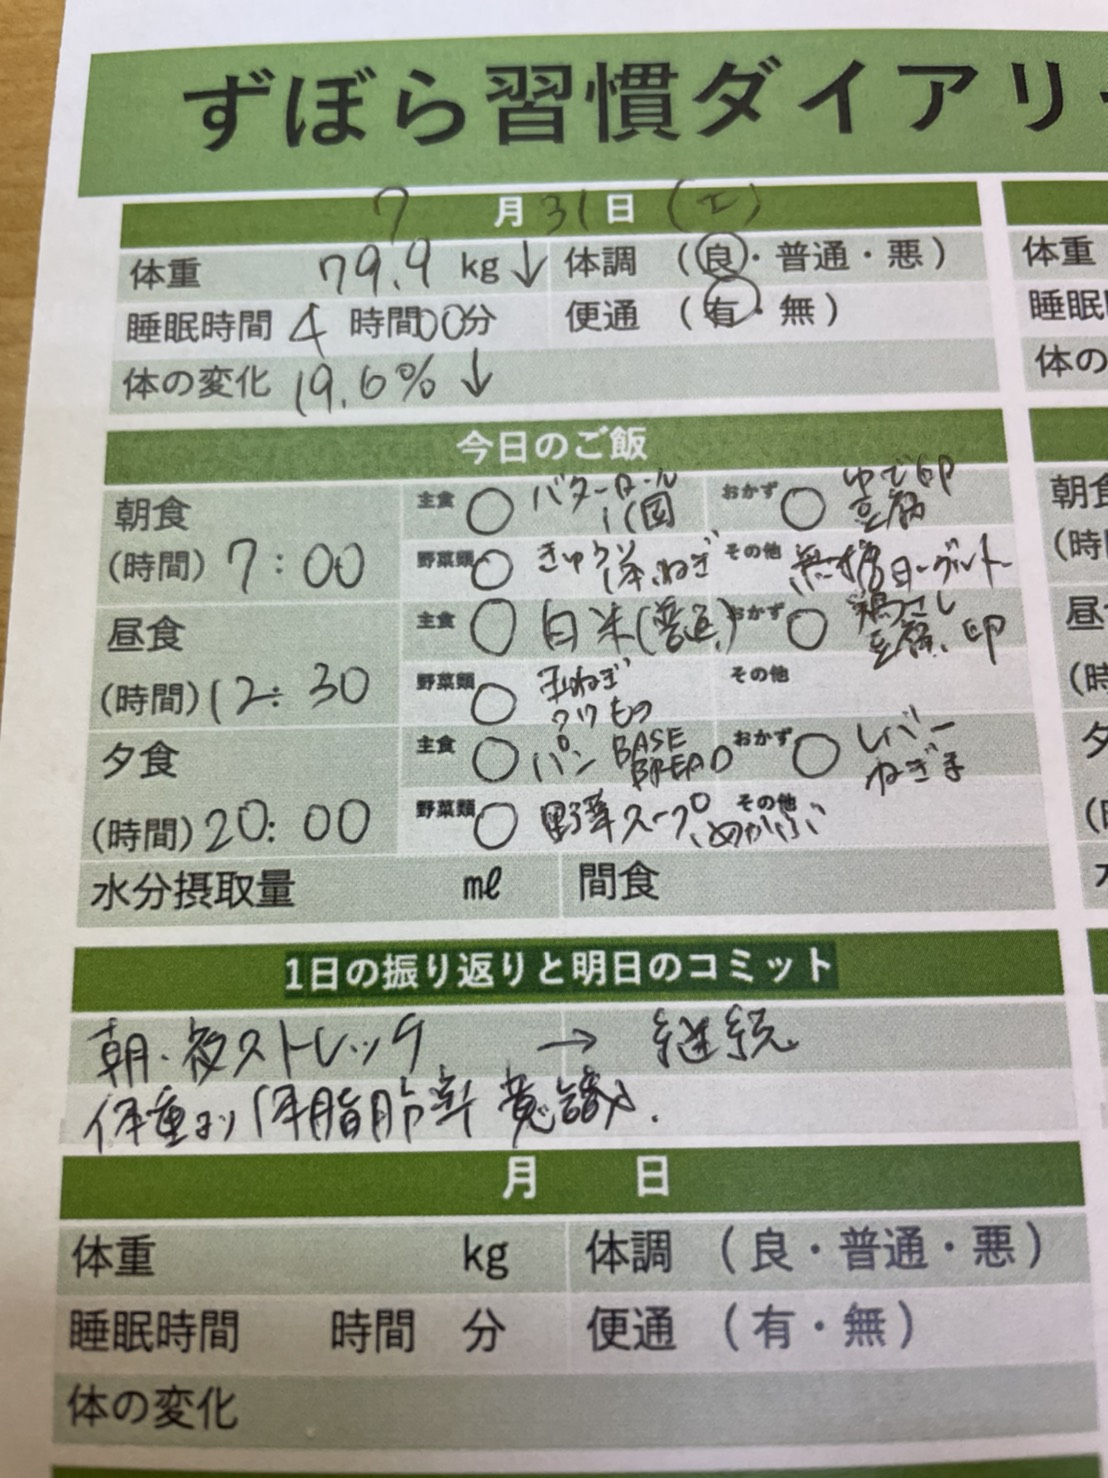 ずぼら習慣ダイアリー
7月31日(土)
体重 79.9 kg↓ 体調 (良・普通・悪)
睡眠時間 4 時間00分 便通 (有・無)
体の変化 19.6% ↓
今日のご飯
朝食 主食 ○ バターロール 1個 おかず ○ ゆで卵 豆腐
(時間) 7:00 野菜類 ○ きゅうり 1本、ねぎ その他 無糖ヨーグルト
昼食 主食 ○ 白米(普通) おかず ○ 豆腐、卵
(時間) 12:30 野菜類 ○ 玉ねぎ つけもの その他
夕食 主食 ○ パン BASE BREAD おかず ○ レバー ねぎま
(時間) 20:00 野菜類 ○ 野菜スープ、めかぶ その他
水分摂取量 ml 間食
1日の振り返りと明日のコミット
朝・夜ストレッチ → 継続
体重より体脂肪率意識
月 日
体重 kg 体調 (良・普通・悪)
睡眠時間 時間 分 便通 (有・無)
体の変化
体重
睡眠
体の
朝食
(時
昼
(時
夕